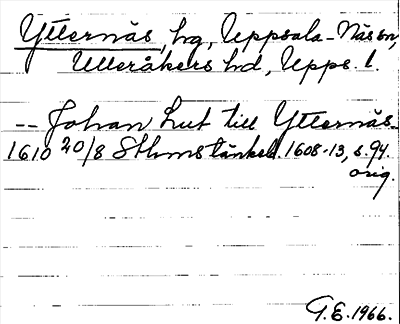 Ytternäs, hg, Uppsala-Näs sn,
Ulleråkers hd, Upps. l.
-- Johan Lut till Ytternäs
1610 20/8 Sthms tänkeb. 1608-13, s. 94.
orig.
G.E. 1966.